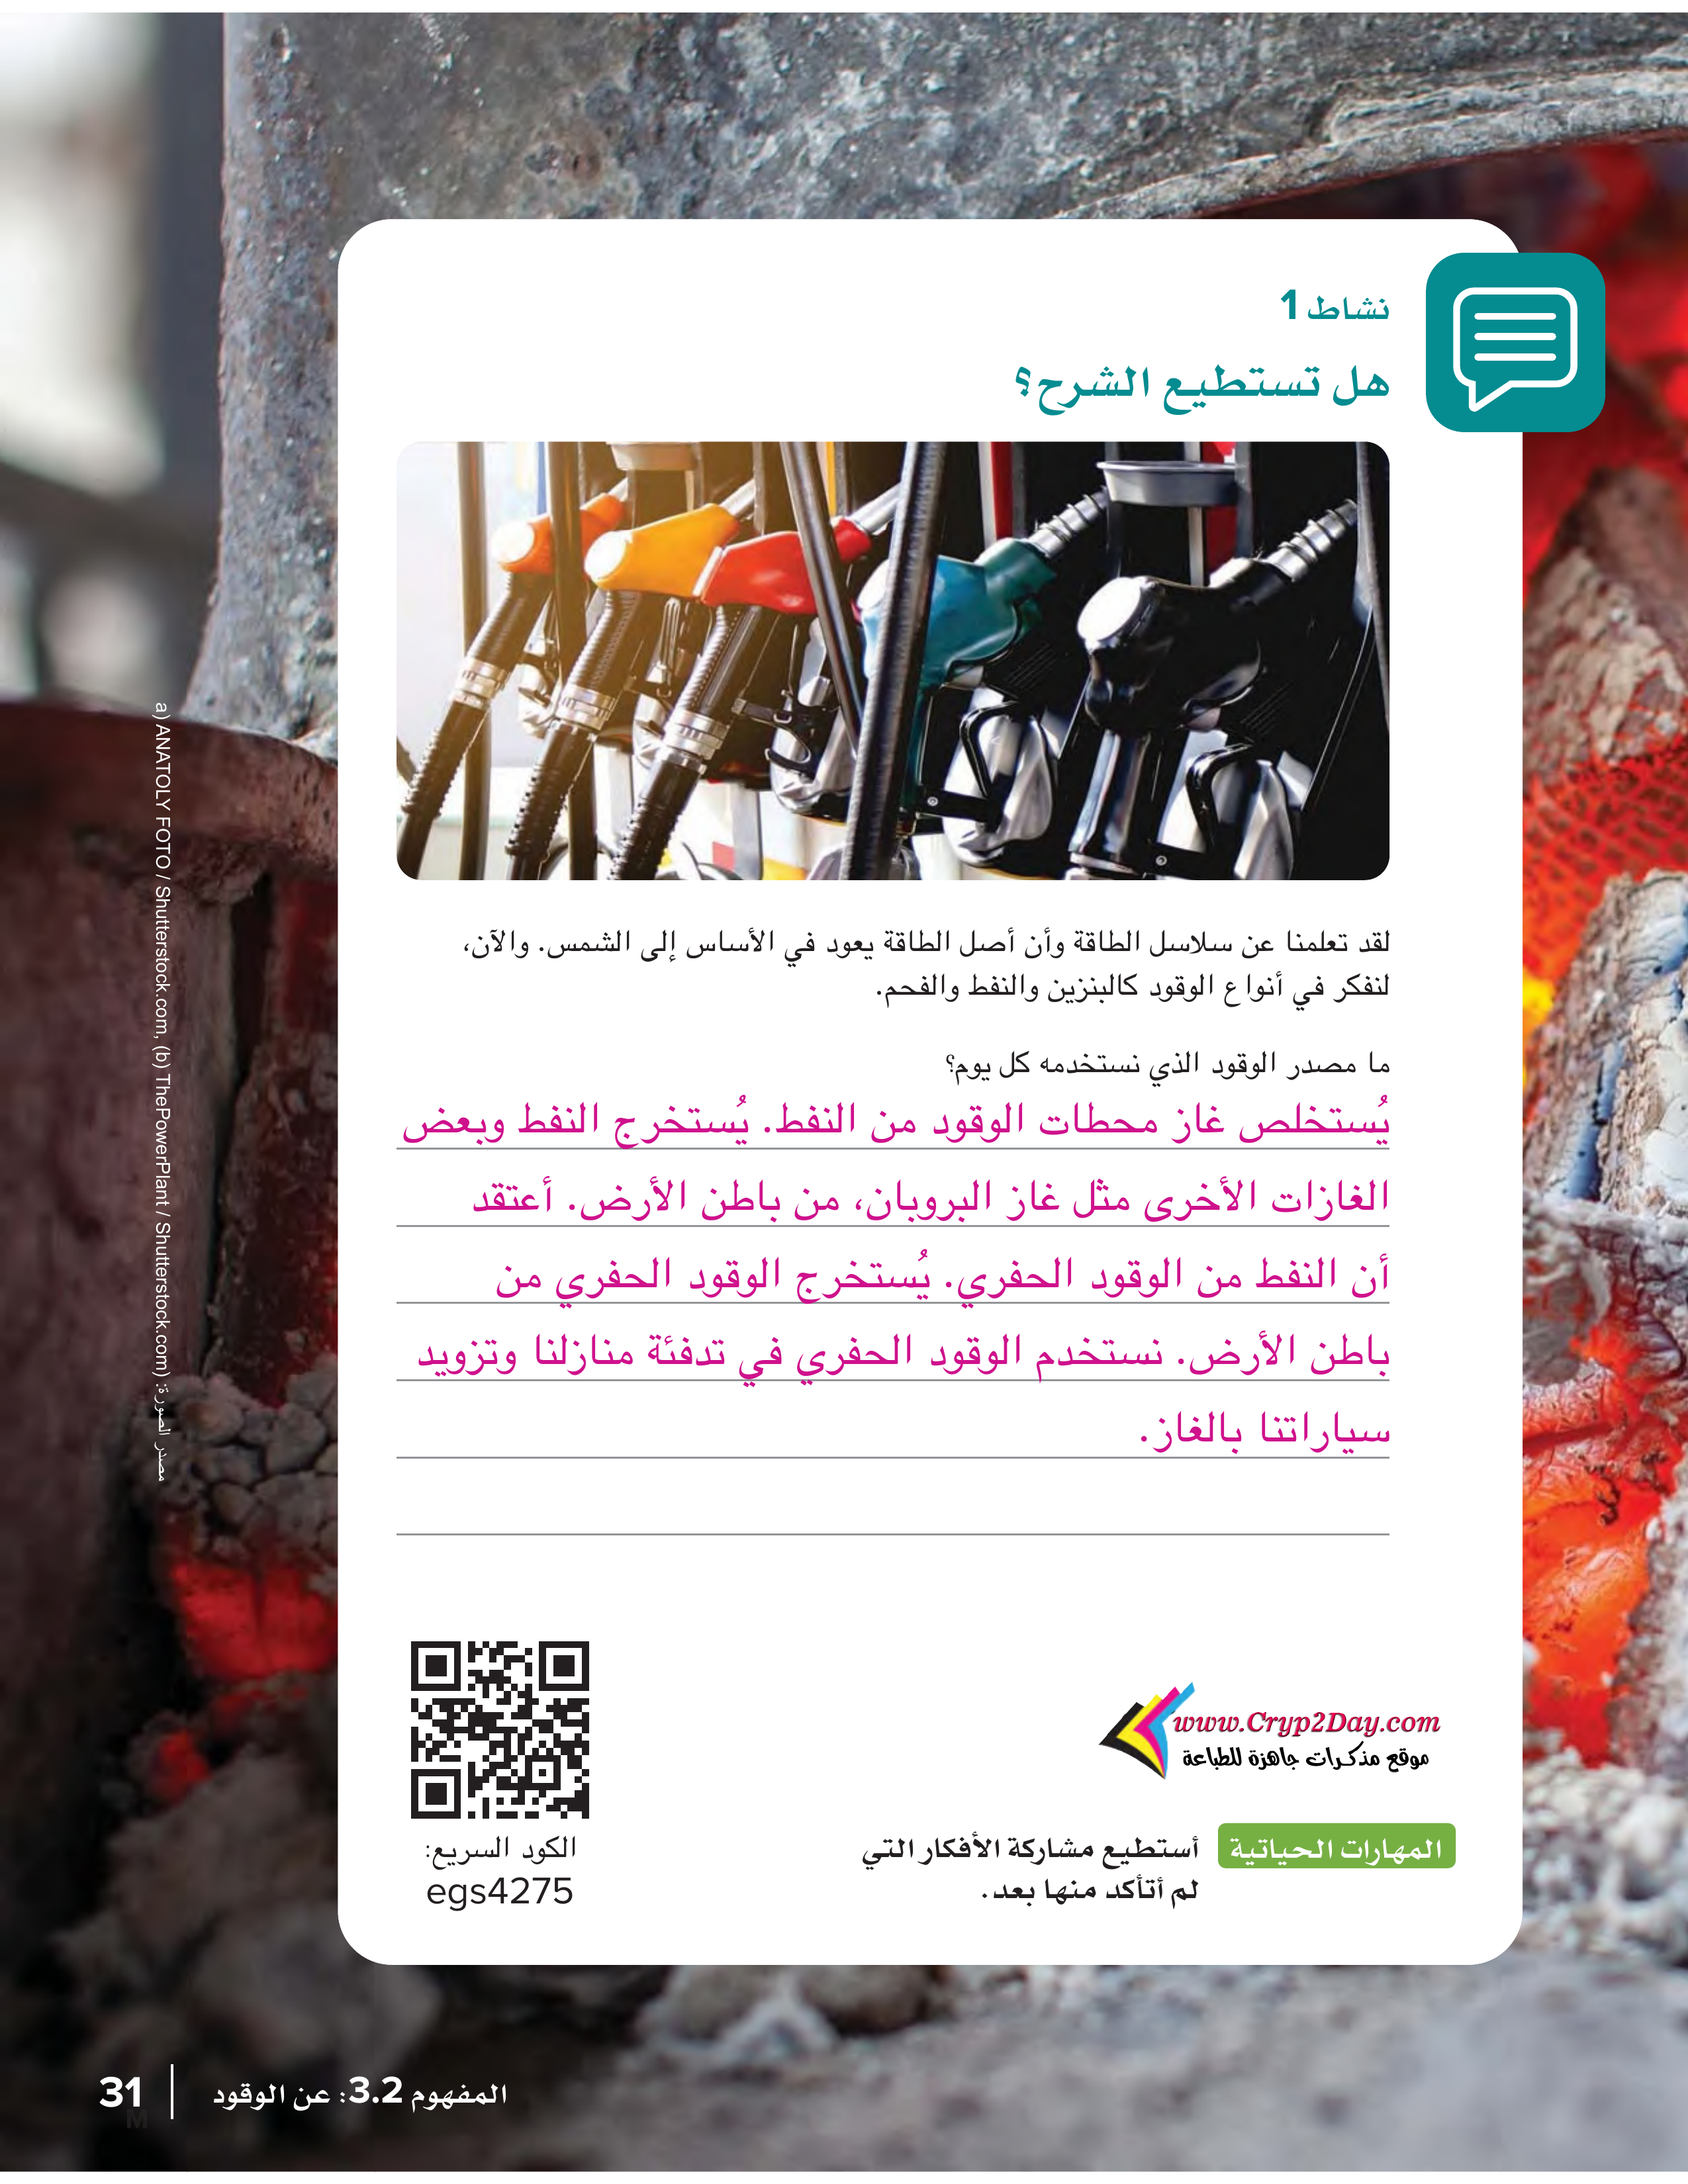 نشاط 1
هل تستطيع الشرح؟
لقد تعلمنا عن سلاسل الطاقة وأن أصل الطاقة يعود في الأساس إلى الشمس. والآن،
لنفكر في أنواع الوقود كالبنزين والنفط والفحم.
ما مصدر الوقود الذي نستخدمه كل يوم؟
يُستخلص غاز محطات الوقود من النفط. يُستخرج النفط وبعض
الغازات الأخرى مثل غاز البروبان، من باطن الأرض. أعتقد
أن النفط من الوقود الحفري. يُستخرج الوقود الحفري من
باطن الأرض. نستخدم الوقود الحفري في تدفئة منازلنا وتزويد
سياراتنا بالغاز.
www.Cryp2Day.com
موقع مذكرات جاهزة للطباعة
المهارات الحياتية أستطيع مشاركة الأفكار التي
لم أتأكد منها بعد.
الكود السريع:
egs4275
مصدر الصورة: (a) ANATOLY FOTO / Shutterstock.com, (b) ThePowerPlant / Shutterstock.com
المفهوم 3.2: عن الوقود | 31
M